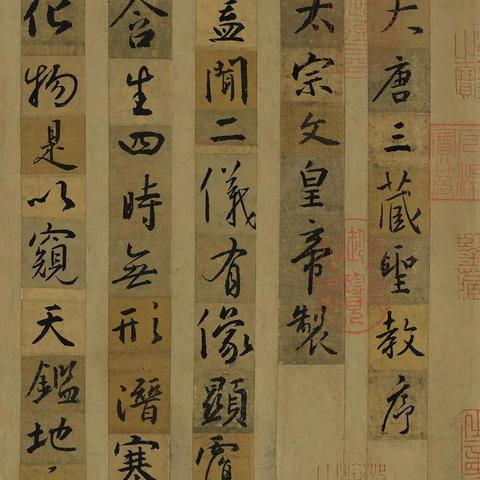 大唐三藏聖教序
太宗文皇帝製
蓋聞二儀有像顯覆
含生四時無形潛寒
化物是以窺天鑑地